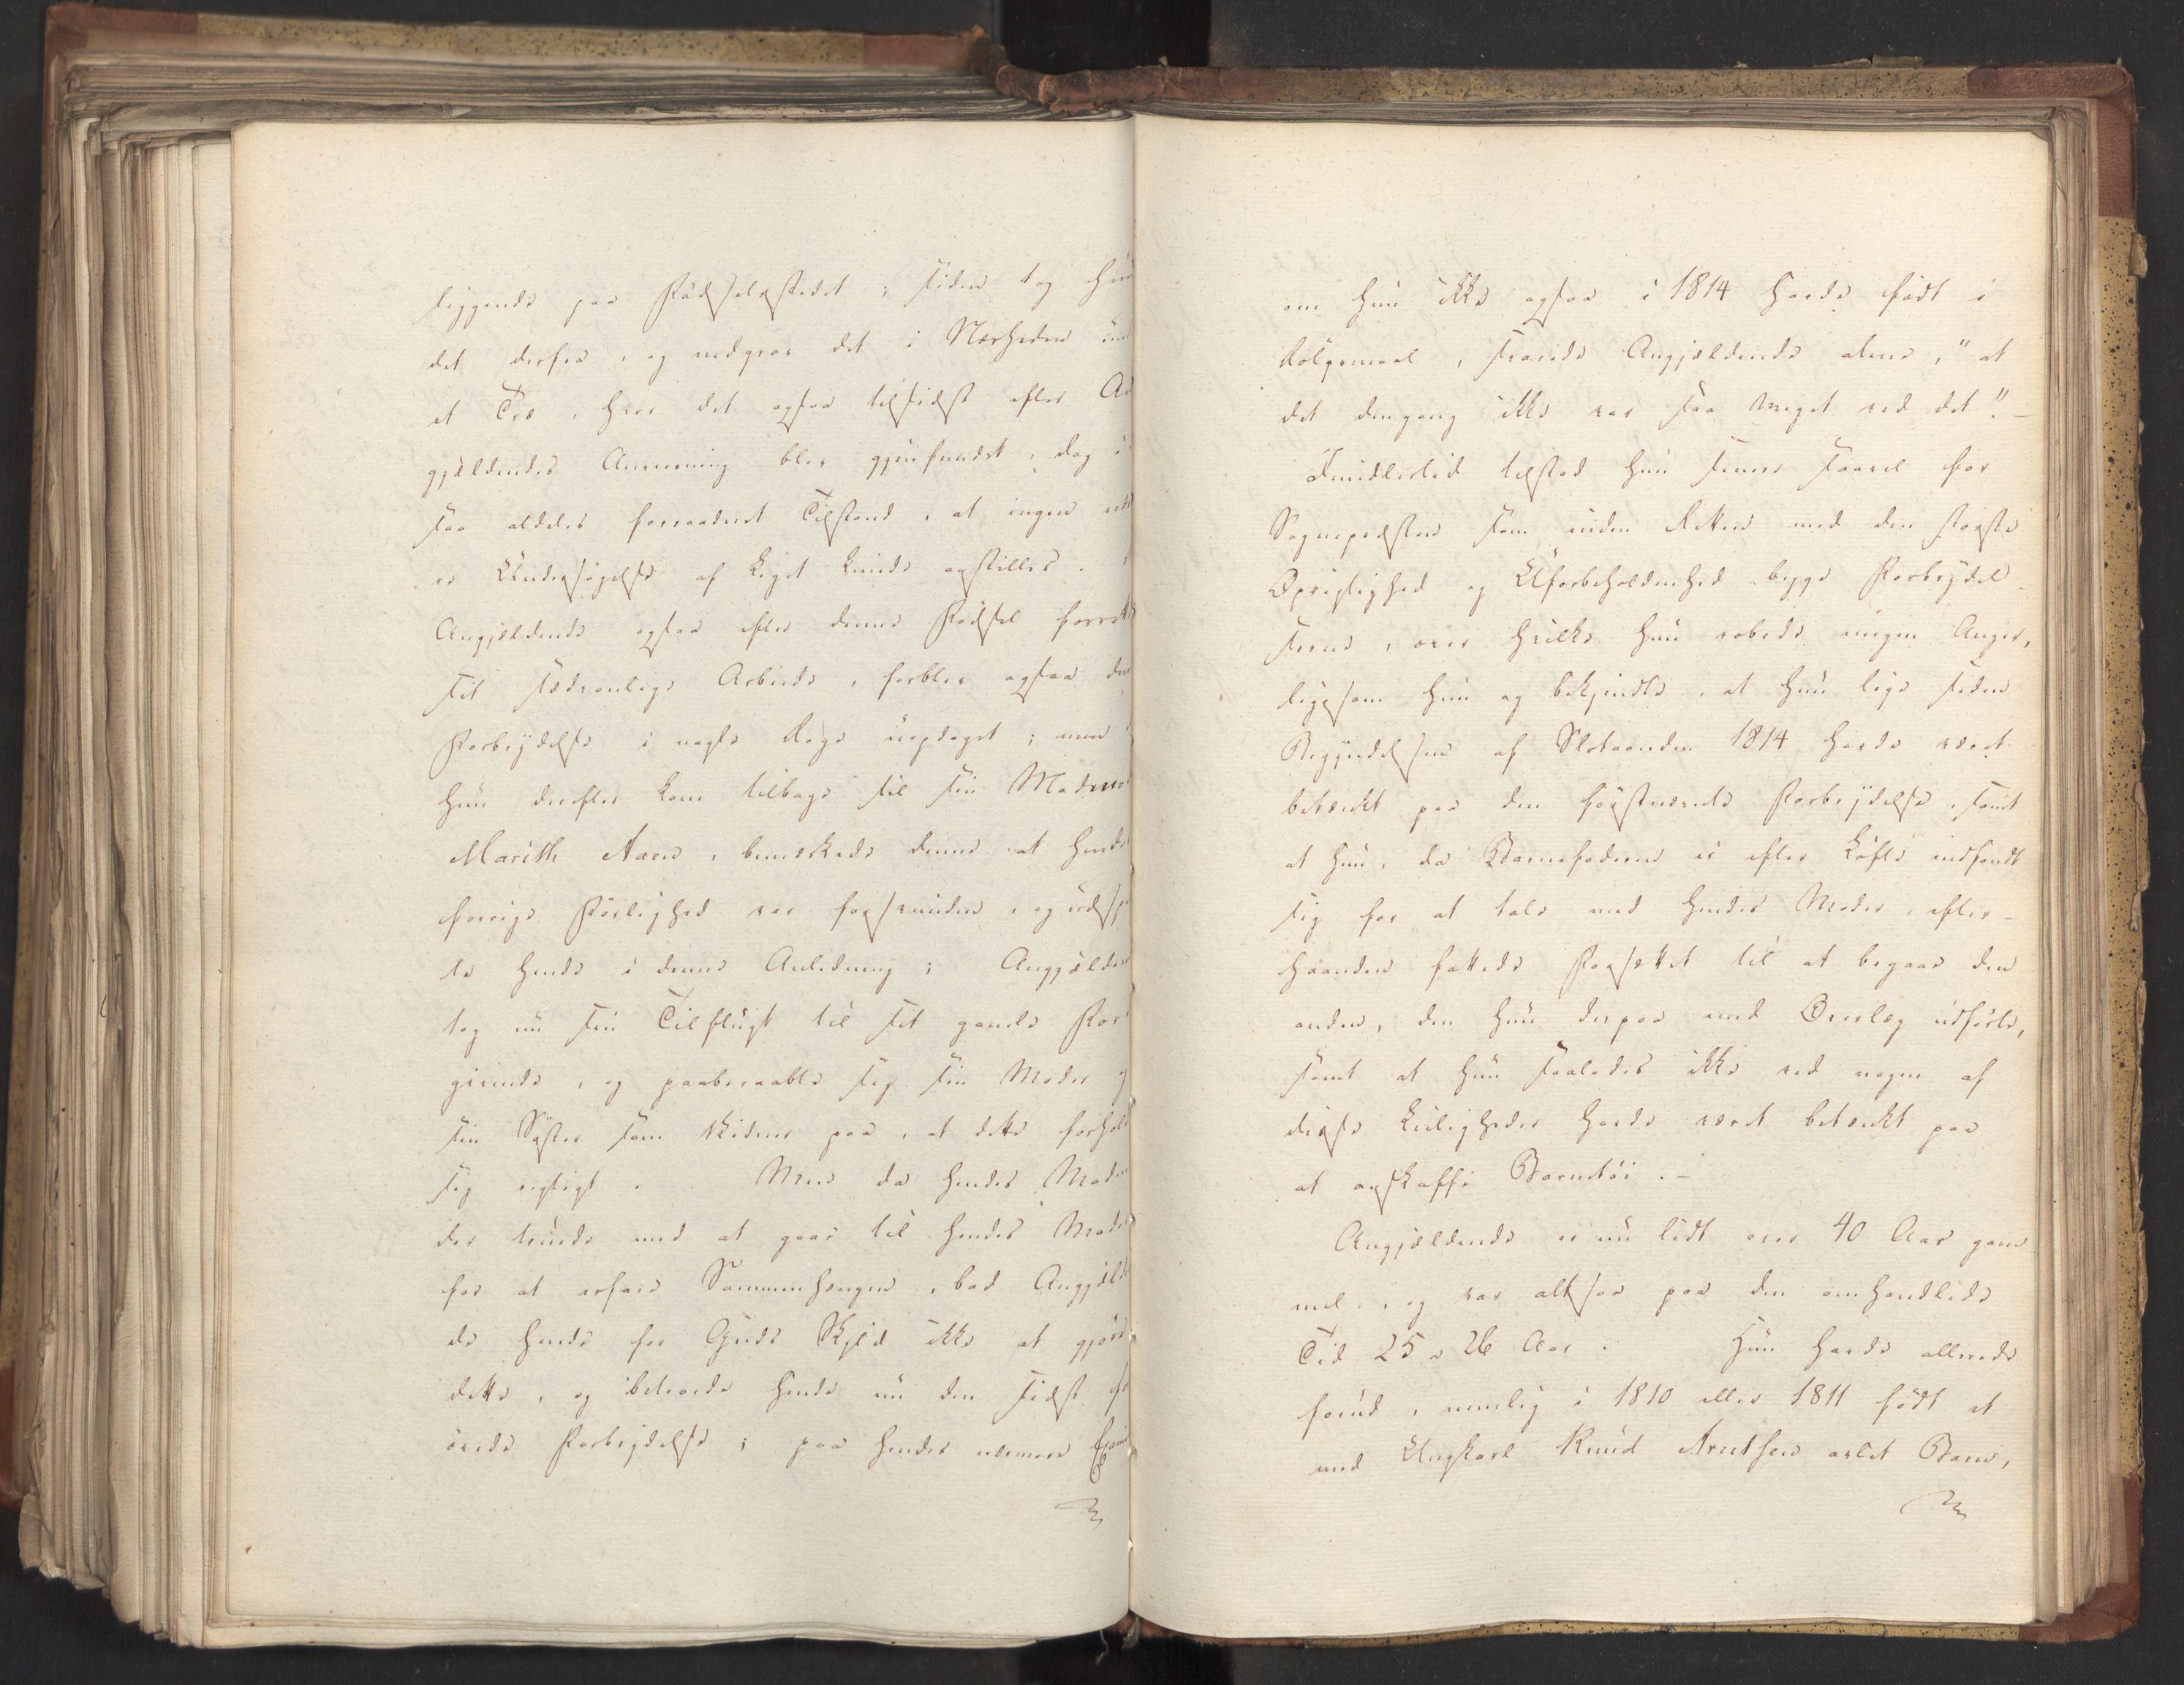 liggende paa Fødselsstedet; siden tog hun
det derfra, og nedgrov det i Nærheden un
et Træ, hvor det ogsaa tilsidst efter An
gjældendes Anvisning blev gjenfundet, dog i
saa aldeles forraadnet Tilstand, at ingen
Undersøgelse af Liget kunde anstilles.
Angjældende ogsaa efter denne Fødsel forret
sit sædvanlige Arbeide, forblev ogsaa den
Forbrydelse i nogle Dage uopdaget; men
hun derefter kom tilbage til sin Madmo
Marith Aaen, bemærkede denne at hendes
forrige Førlighed var forsvunden, og udsp
te hende i denne Anledning; Angjælden
tog nu sin Tilflugt til sit gamle For
givende, og paaberaabte sig sin Moder og
sin Søster som Vidner paa, at dette forholdt
sig rigtigt. Men da hendes Mad
der truede med at gaae til hendes Mode
for at erfare Sammenhængen, bad Angjæld
de hende for Guds Skyld ikke at gjøre
dette, og betroede hende nu den sidst
øvede Forbrydelse; paa hendes nærmere
om hun ikke ogsaa i 1814 havde født i
Dølgsmaal, svarede Angjældende alene, "at
det dengang ikke var saa meget ved det". –
Imidlertid tilstod hun senere saavel for
Sognepræsten som inden Retten med den største
Oprigtighed og Uforbeholdenhed begge Forbrydel-
serne, over hvilke hun robede megen Anger,
ligesom hun og bekjendte, at hun lige siden
Begyndelsen af Slotaanden 1814 havde været
betænkt paa den førstnævnte Forbrydelse, samt
at hun, da Barnefaderen ei efter Løfte indfandt
sig for at tale med hendes Moder, efter-
haanden fattede Forsættet til at begaae den
anden, den hun derpaa med Overlæg udførte,
samt at hun saaledes ikke ved nogen af
disse Leiligheder havde været betænkt paa
at anskaffe Barnetøi. –
Angjældende er nu lidt over 40 Aar gam
mel, og var altsaa paa den omhandlede
Tid 25 a 26 Aar. Hun havde allerede
forud, nemlig i 1810 eller 1811 født et
med Ungkarl Knud Arntsen avlet Barn,